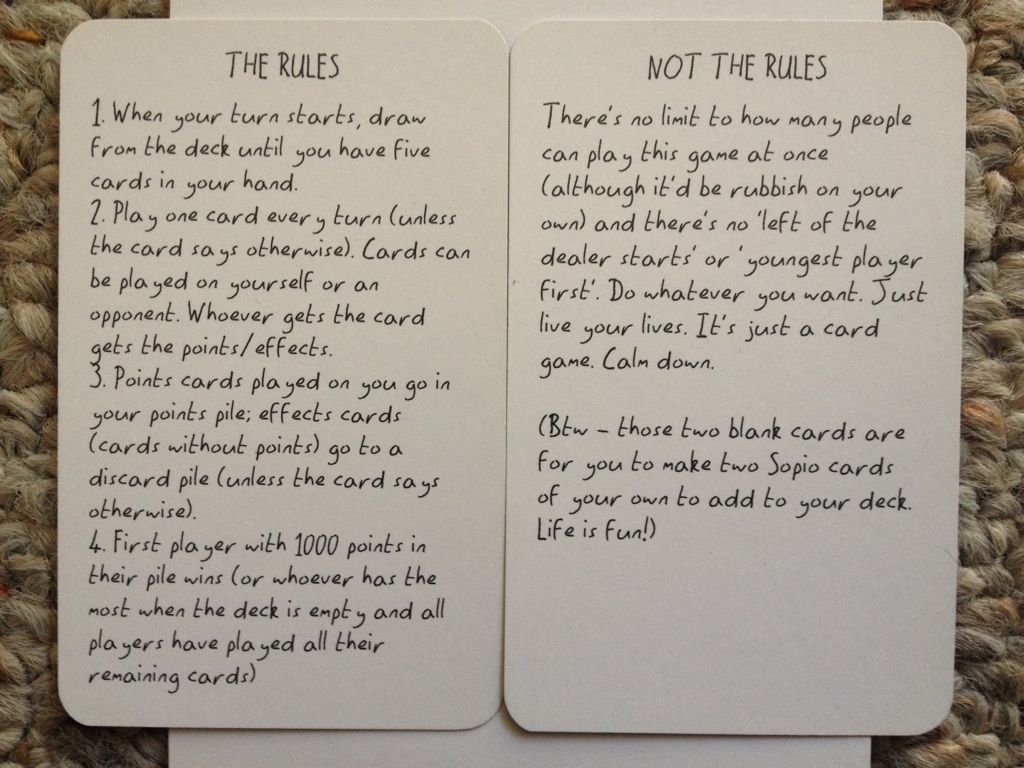 THE RULES
1. When your turn starts, draw
from the deck until you have five
cards in your hand.
2. Play one card every turn (unless
the card says otherwise). Cards can
be played on yourself or an
opponent. Whoever gets the card
gets the points/effects.
3. Points cards played on you go in
your points pile; effects cards
(cards without points) go to a
discard pile (unless the card says
otherwise).
4. First player with 1000 points in
their pile wins (or whoever has the
most when the deck is empty and all
players have played all their
remaining cards)
NOT THE RULES
There's no limit to how many people
can play this game at once
(although it'd be rubbish on your
own) and there's no 'left of the
dealer starts' or 'youngest player
first'. Do whatever you want. Just
live your lives. It's just a card
game. Calm down.
(Btw - those two blank cards are
for you to make two Sopio cards
of your own to add to your deck.
Life is fun!)